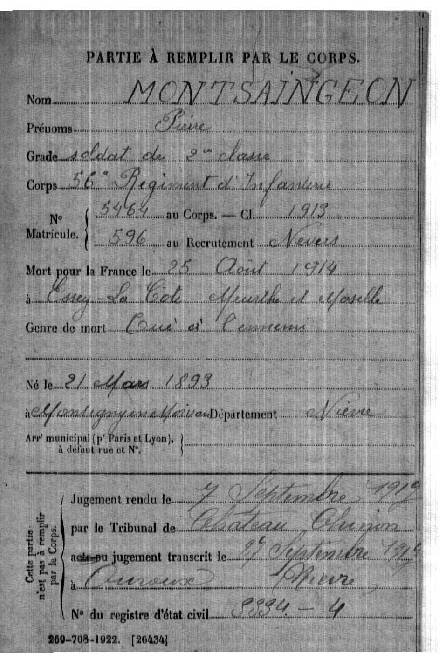 PARTIE À REMPLIR PAR LE CORPS.
Nom MONTSAINGEON
Prénoms Pierre
Grade soldat de 2me classe
Corps 56e Regiment d'Infanterie
N° Matricule. { 5464 au Corps. — Cl. 1913
596 au Recrutement Nevers
Mort pour la France le 25 Août 1914
à Essey La Cote Meurthe et Moselle
Genre de mort Tué à l'ennemi
Né le 21 Mars 1893
à Montigny en Morvan Département Nièvre
Arrt municipal (pr Paris et Lyon), à défaut rue et N°.
Cette partie n'est pas à remplir par le Corps.
Jugement rendu le 7 Septembre
par le Tribunal de Château Chinon
acte ou jugement transcrit le Septembre
à Ouroux Nièvre
N° du registre d'état civil
269-708-1922. [26434]